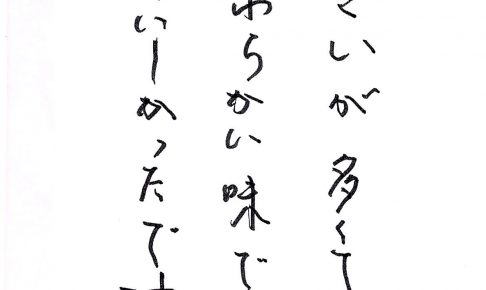 さいが多くて
わらかい味で
いしかったです